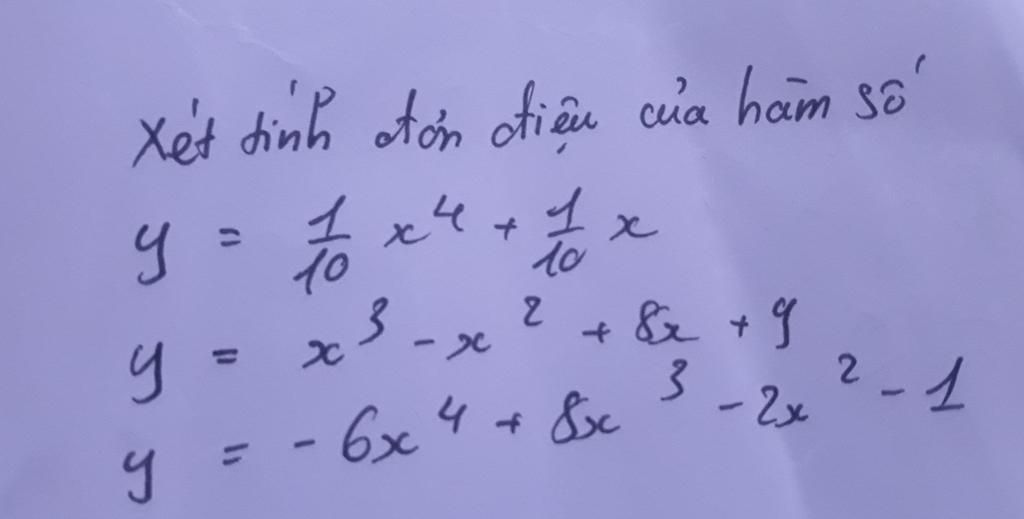 Xét tính đơn điệu của hàm số
y = 1/10 x⁴ + 1/10 x
y = x³ - x² + 8x + 9
y = - 6x⁴ + 8x³ - 2x² - 1